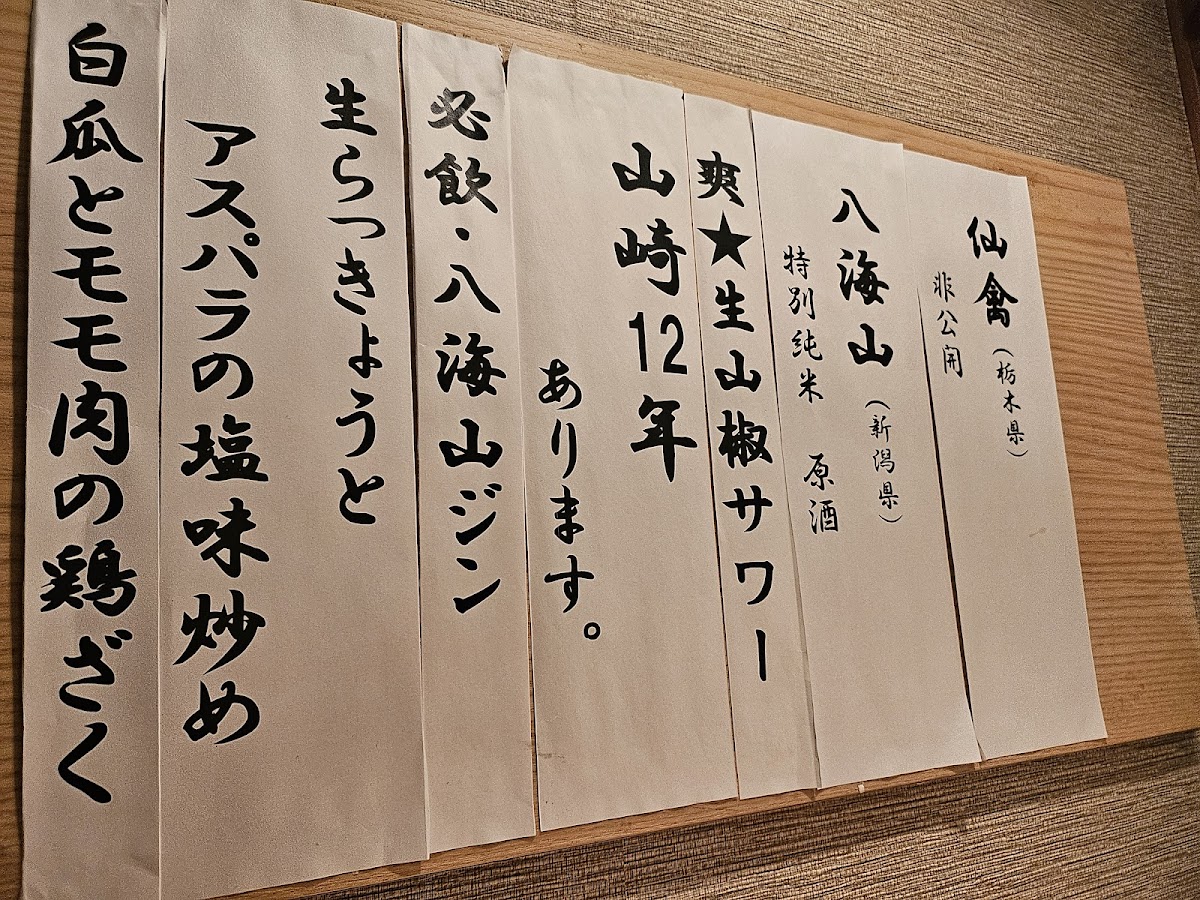 仙禽（栃木県）
非公開
八海山（新潟県）
特別純米 原酒
爽★生山椒サワー
山崎12年
あります。
必飲・八海山ジン
生らっきょうと
アスパラの塩味炒め
白瓜とモモ肉の鶏ざく